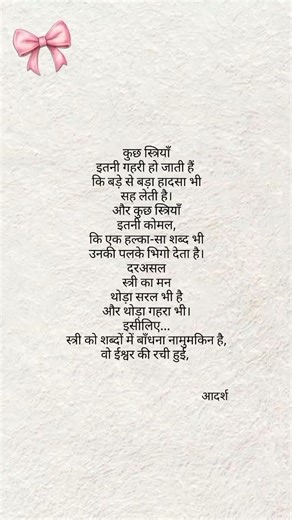 कुछ स्त्रियाँ
इतनी गहरी हो जाती हैं
कि बड़े से बड़ा हादसा भी
सह लेती है।
और कुछ स्त्रियाँ
इतनी कोमल,
कि एक हल्का-सा शब्द भी
उनकी पलके भिगो देता है।
दरअसल
स्त्री का मन
थोड़ा सरल भी है
और थोड़ा गहरा भी।
इसीलिए...
स्त्री को शब्दों में बाँधना नामुमकिन है,
वो ईश्वर की रची हुई,
आदर्श